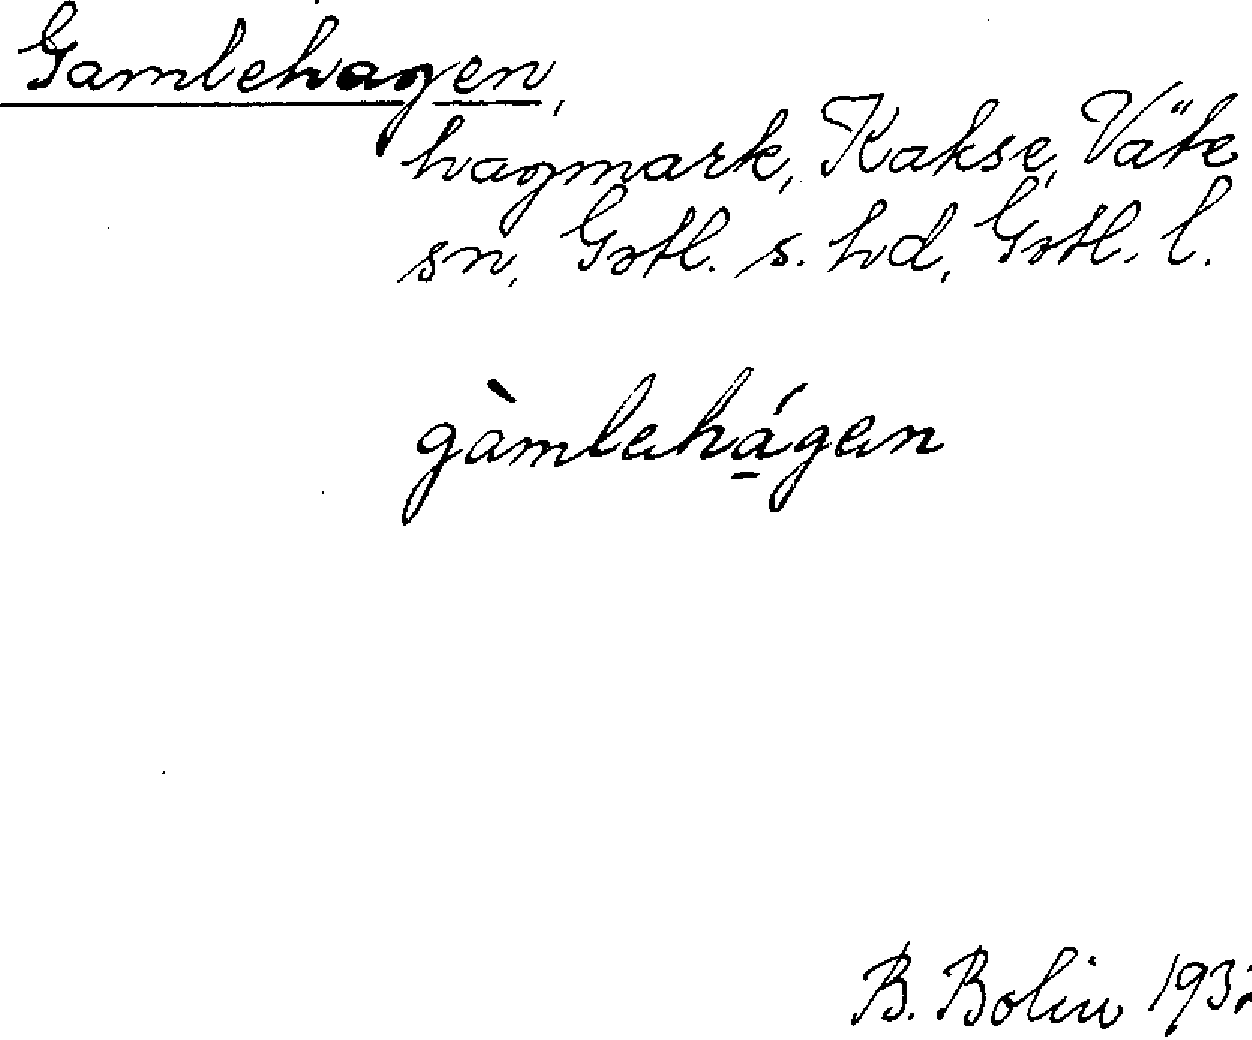 Gamlehagen,
hagmark, Kakse, Väte
sn, Gotl. s. hd, Gotl. l.
gàmlahágan
B. Bolin 1932